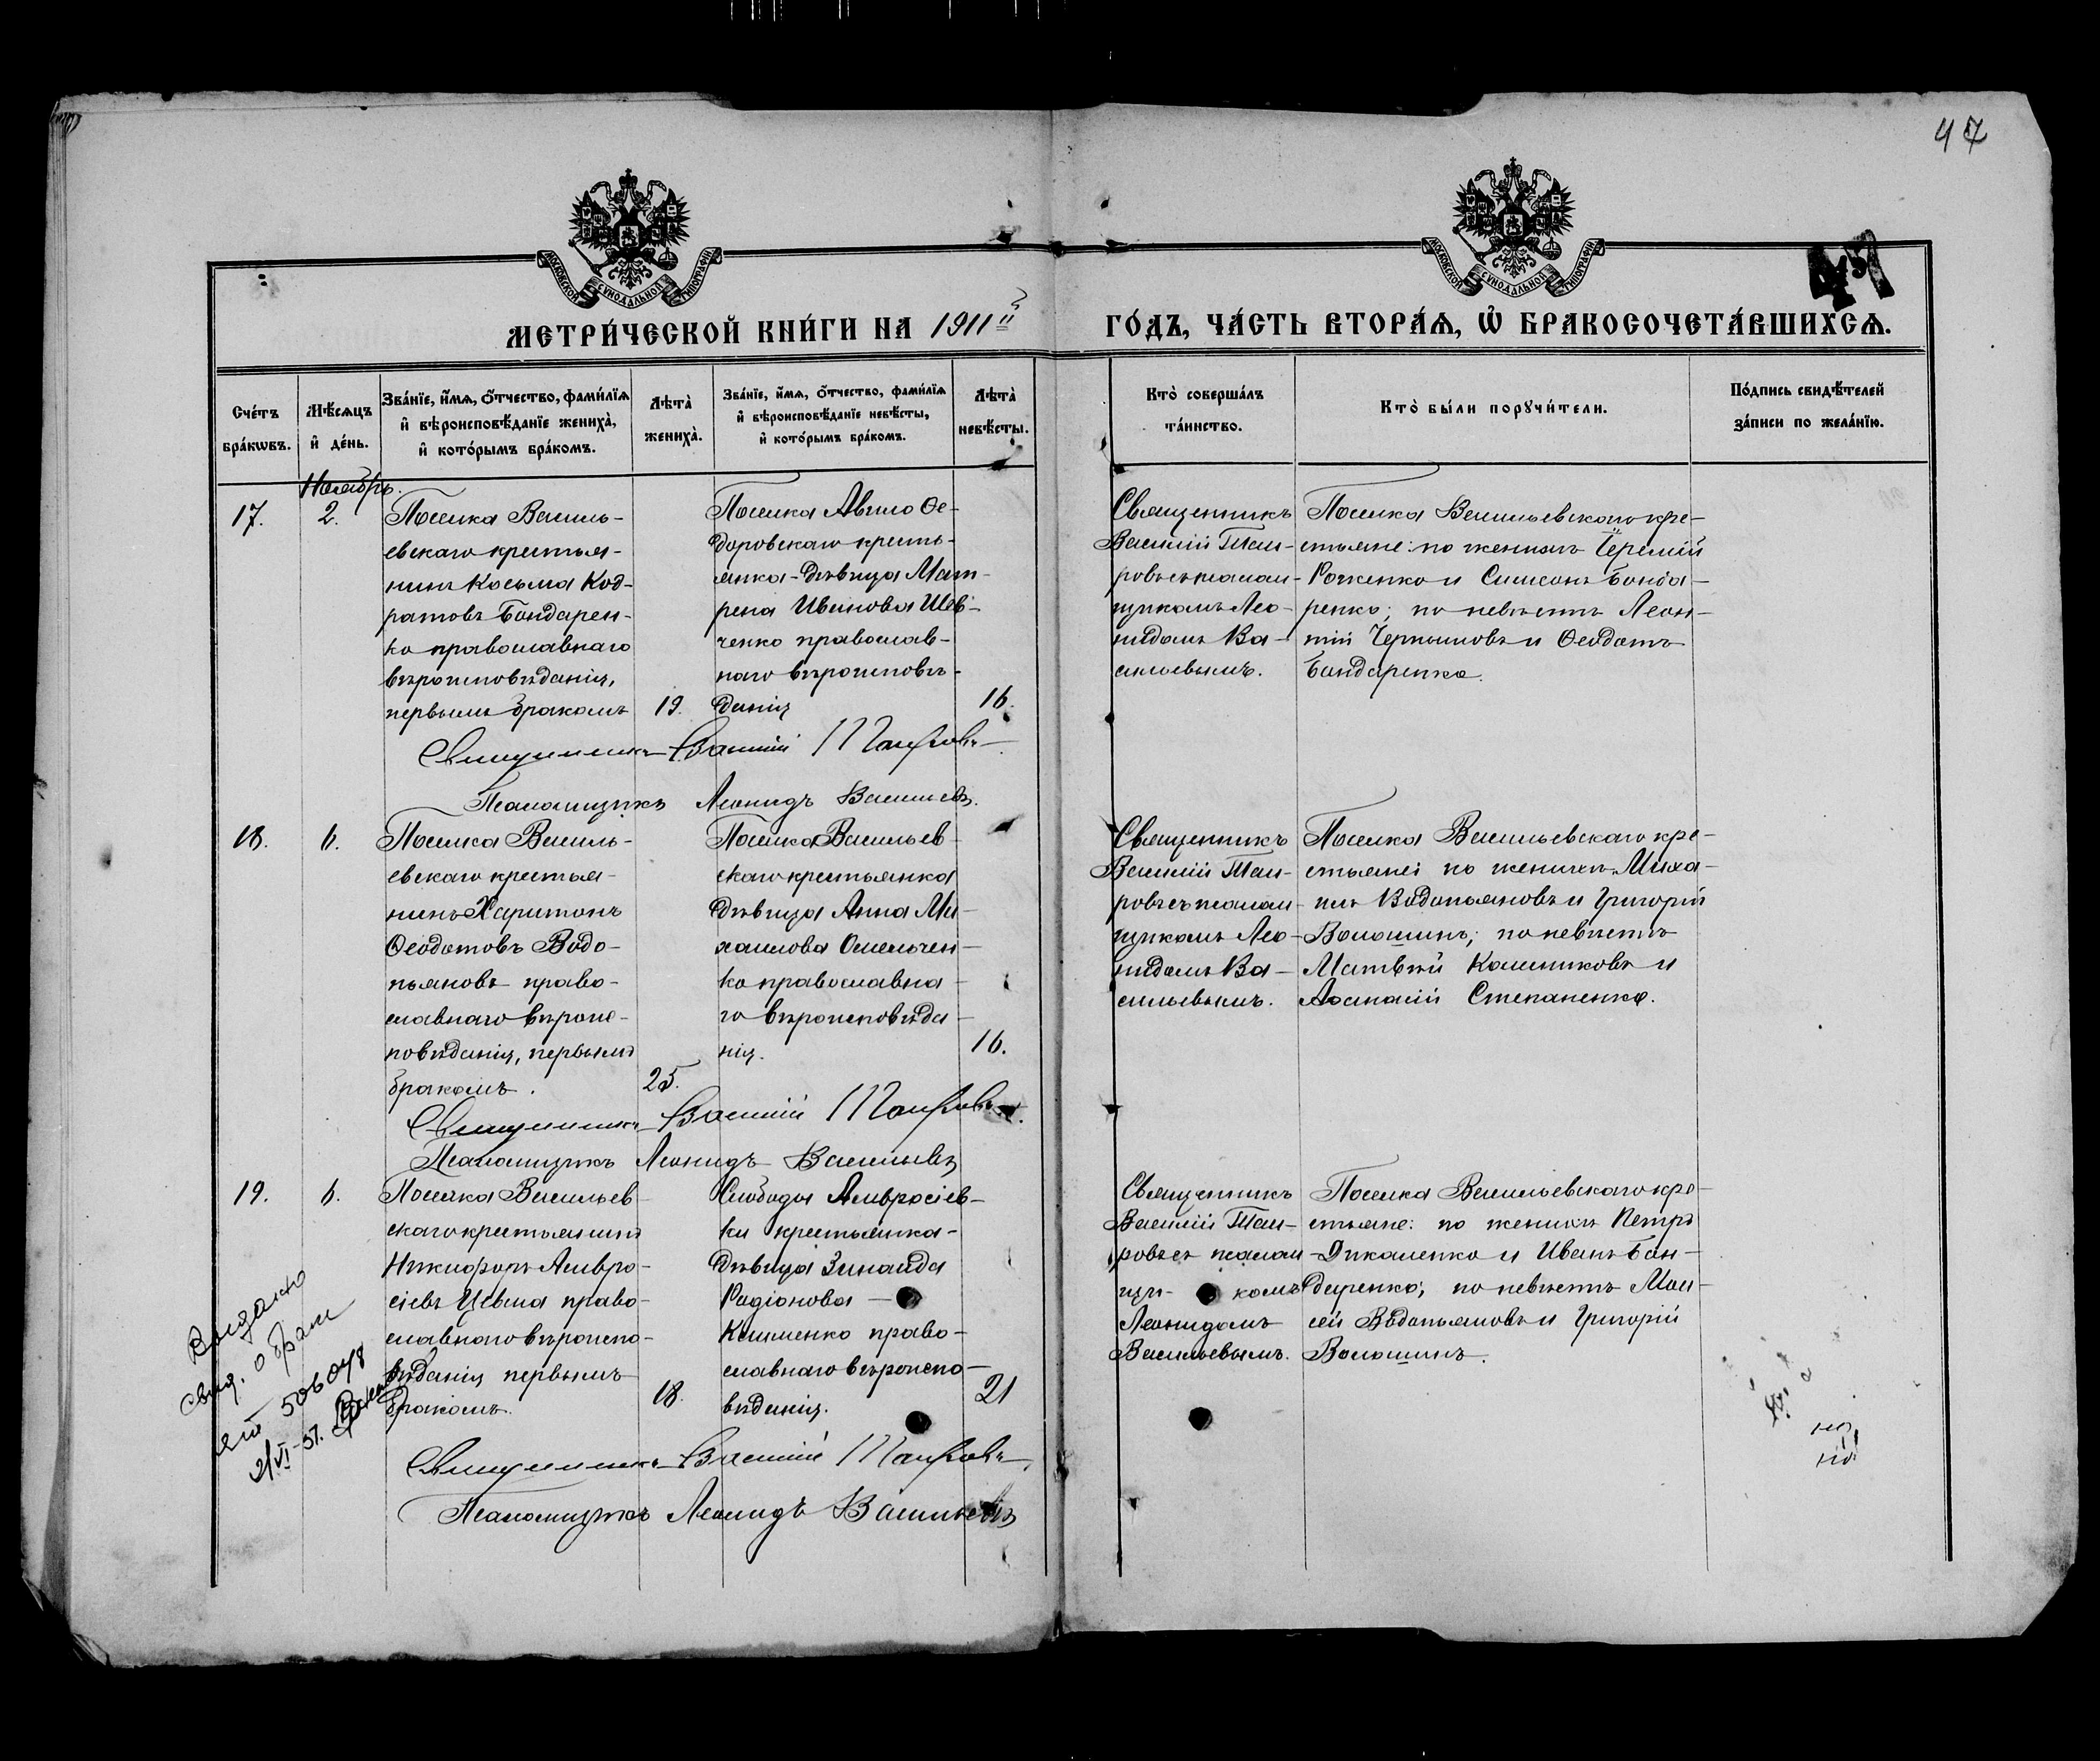 47
МОСКОВСКОЙ СѴНОДАЛЬНОЙ ТИПОГРАФІИ
МОСКОВСКОЙ СѴНОДАЛЬНОЙ ТИПОГРАФІИ
47
МЕТРИ́ЧЕСКОЙ КНИ́ГИ НА 1911й
ГО́ДЪ, ЧА́СТЬ ВТОРА́Ѧ, Ѡ҆ БРАКОСОЧЕТА́ВШИХСѦ.
Сче́тъ бра́кѡвъ.
Мѣ́сѧцъ и҆ де́нь.
Зва́нїе, и҆́мѧ, ѻ҆́тчество, фами́лїѧ
и҆ вѣроисповѣ́данїе жениха̀,
и҆ кото́рымъ бра́комъ.
Лѣта̀ жениха̀.
Зва́нїе, и҆́мѧ, ѻ҆́тчество, фами́лїѧ
и҆ вѣроисповѣ́данїе невѣ́сты,
и҆ кото́рымъ бра́комъ.
Лѣта̀ невѣ́сты.
Кто̀ соверша́лъ
та́инство.
Кто̀ бы́ли порꙋчи́тели.
По́дпись свидѣ́телей
за́писи по жела́нїю.
Ноябрь.
17.
2.
Поселка Василь-
евскаго крестья-
нинъ Косьма Код-
ратовъ Бондарен-
ко православнаго
вѣроисповѣданія,
первымъ бракомъ
19.
Поселка Авило Ѳе-
доровскаго кресть-
янка-дѣвица Мат-
рена Иванова Шев-
ченко православ-
наго вѣроисповѣ-
данія
16.
Священникъ
Василій
съ псалом-
щикомъ Лео-
нидомъ Ва-
сильевымъ.
Поселка Васильевскаго кре-
стьяне: по женихѣ Іеремій
и Симеонъ Бонда-
ренко; по невѣстѣ Леон-
тій и Ѳеодотъ
Бондаренко.
Священникъ Василій
Псаломщикъ Леонидъ Васильевъ.
18.
6.
Поселка Василь-
евскаго крестья-
нинъ Харитонъ
Ѳеодотовъ Водо-
пьяновъ право-
славнаго вѣроис-
повѣданія, первымъ
бракомъ.
25.
Поселка Васильев-
скаго крестьянка
дѣвица Анна Ми-
хаилова Омельчен-
ко православна-
го вѣроисповѣда-
нія.
16.
Священникъ
Василій
съ псалом-
щикомъ Лео-
нидомъ Ва-
сильевымъ.
Поселка Васильевскаго кре-
стьяне: по женихѣ Миха-
илъ Водопьяновъ и Григорій
Волошинъ; по невѣстѣ
Матвѣй Калашниковъ и
Аѳанасій Степаненко.
Священникъ Василій
Псаломщикъ Леонидъ Васильевъ
19.
6.
Поселка Васильев-
скаго крестьянинъ
Никифоръ Амвро-
сіевъ Цевма право-
славнаго вѣроиспо-
вѣданія первымъ
бракомъ.
18.
Слободы Амвросіев-
ки крестьянка-
дѣвица Зинаида
Родіонова
Клименко право-
славнаго вѣроиспо-
вѣданія.
21
Священникъ
Василій
съ псалом-
щи-комъ
Леонидомъ
Васильевымъ.
Поселка Васильевскаго кре-
стьяне: по женихѣ Петръ
Дикаленко и Иванъ Бон-
даренко; по невѣстѣ Мои-
сей Водопьяновъ и Григорій
Волошинъ.
Выдано
свид. о браке
506048
2/VI-51.
Священникъ Василій
Псаломщикъ Леонидъ Васильевъ